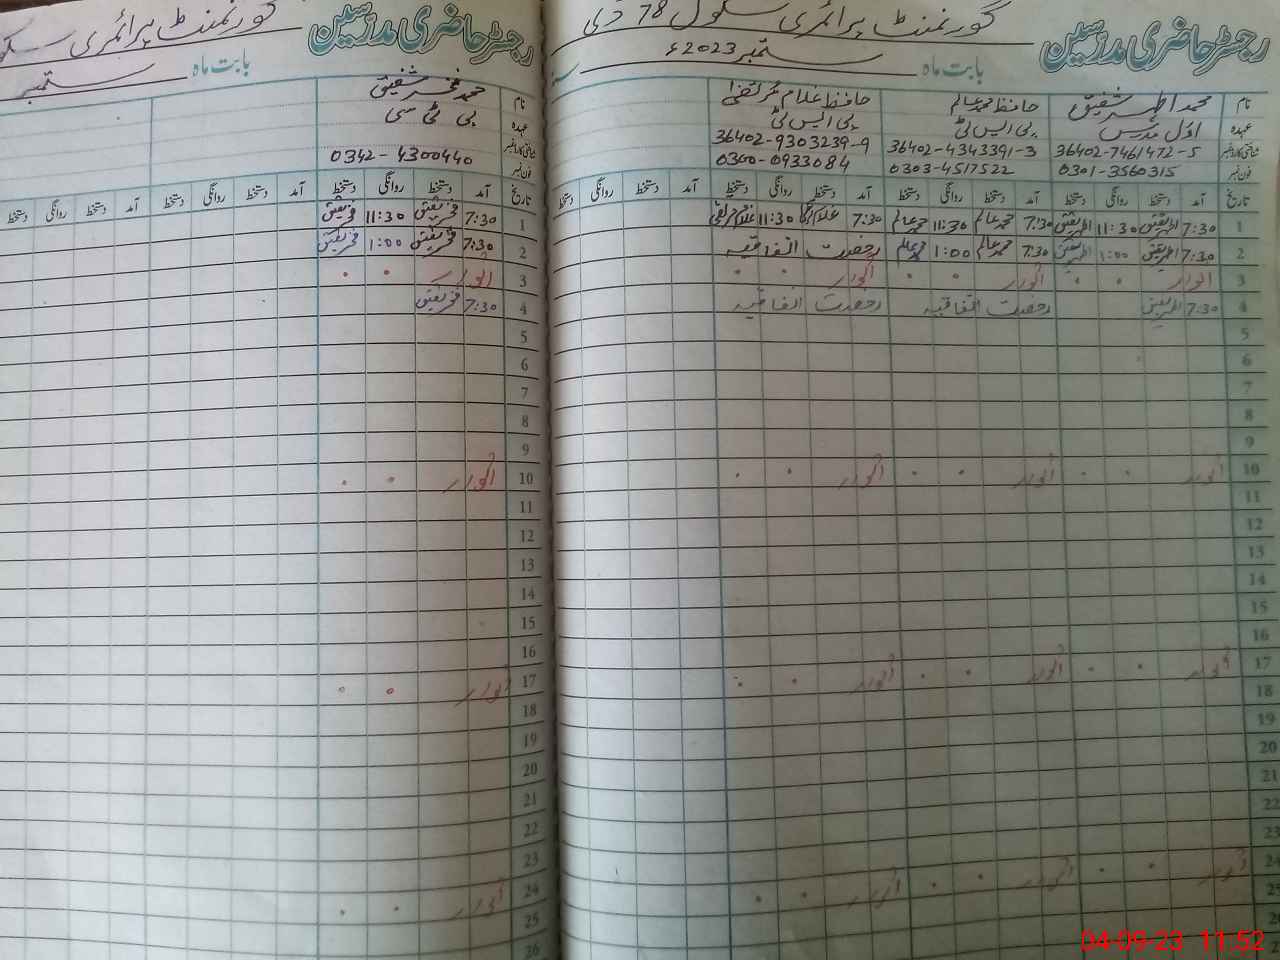 رجسٹر حاضری مدرسین گورنمنٹ پرائمری سکول 78 ڈی
بابت ماہ ستمبر 2023ء
نام محمد اطہر شفیق حافظ محمد عالم حافظ غلام مرتضیٰ
عہدہ اول مدرس پی ایس ٹی پی ایس ٹی
شناختی کارڈ نمبر 36402-7461472-5 36402-4343391-3 36402-9303239-9
فون نمبر 0301-3560315 0303-4517522 0300-0933084
تاریخ آمد دستخط روانگی دستخط آمد دستخط روانگی دستخط آمد دستخط روانگی دستخط آمد دستخط روانگی دستخط
1 7:30 اطہر شفیق 11:30 اطہر شفیق 7:30 محمد عالم 11:30 محمد عالم 7:30 غلام مرتضیٰ 11:30 غلام مرتضیٰ
2 7:30 اطہر شفیق 1:00 اطہر شفیق 7:30 محمد عالم 1:00 محمد عالم رخصت اتفاقیہ
3 اتوار اتوار اتوار
4 7:30 اطہر شفیق رخصت اتفاقیہ رخصت اتفاقیہ
5
6
7
8
9
10 اتوار اتوار اتوار
11
12
13
14
15
16
17 اتوار اتوار اتوار
18
19
20
21
22
23
24 اتوار اتوار اتوار
25
26
رجسٹر حاضری مدرسین گورنمنٹ پرائمری
بابت ماہ ستمبر
نام محمد فخر شفیق
عہدہ پی ٹی سی
شناختی کارڈ نمبر
فون نمبر 0342-4300440
تاریخ آمد دستخط روانگی دستخط آمد دستخط روانگی دستخط آمد دستخط روانگی دستخط
1 7:30 فخر شفیق 11:30 فخر شفیق
2 7:30 فخر شفیق 1:00 فخر شفیق
3 اتوار
4 7:30 فخر شفیق
5
6
7
8
9
10 اتوار
11
12
13
14
15
16
17 اتوار
18
19
20
21
22
23
24 اتوار
25
26
04-09-23 11:52